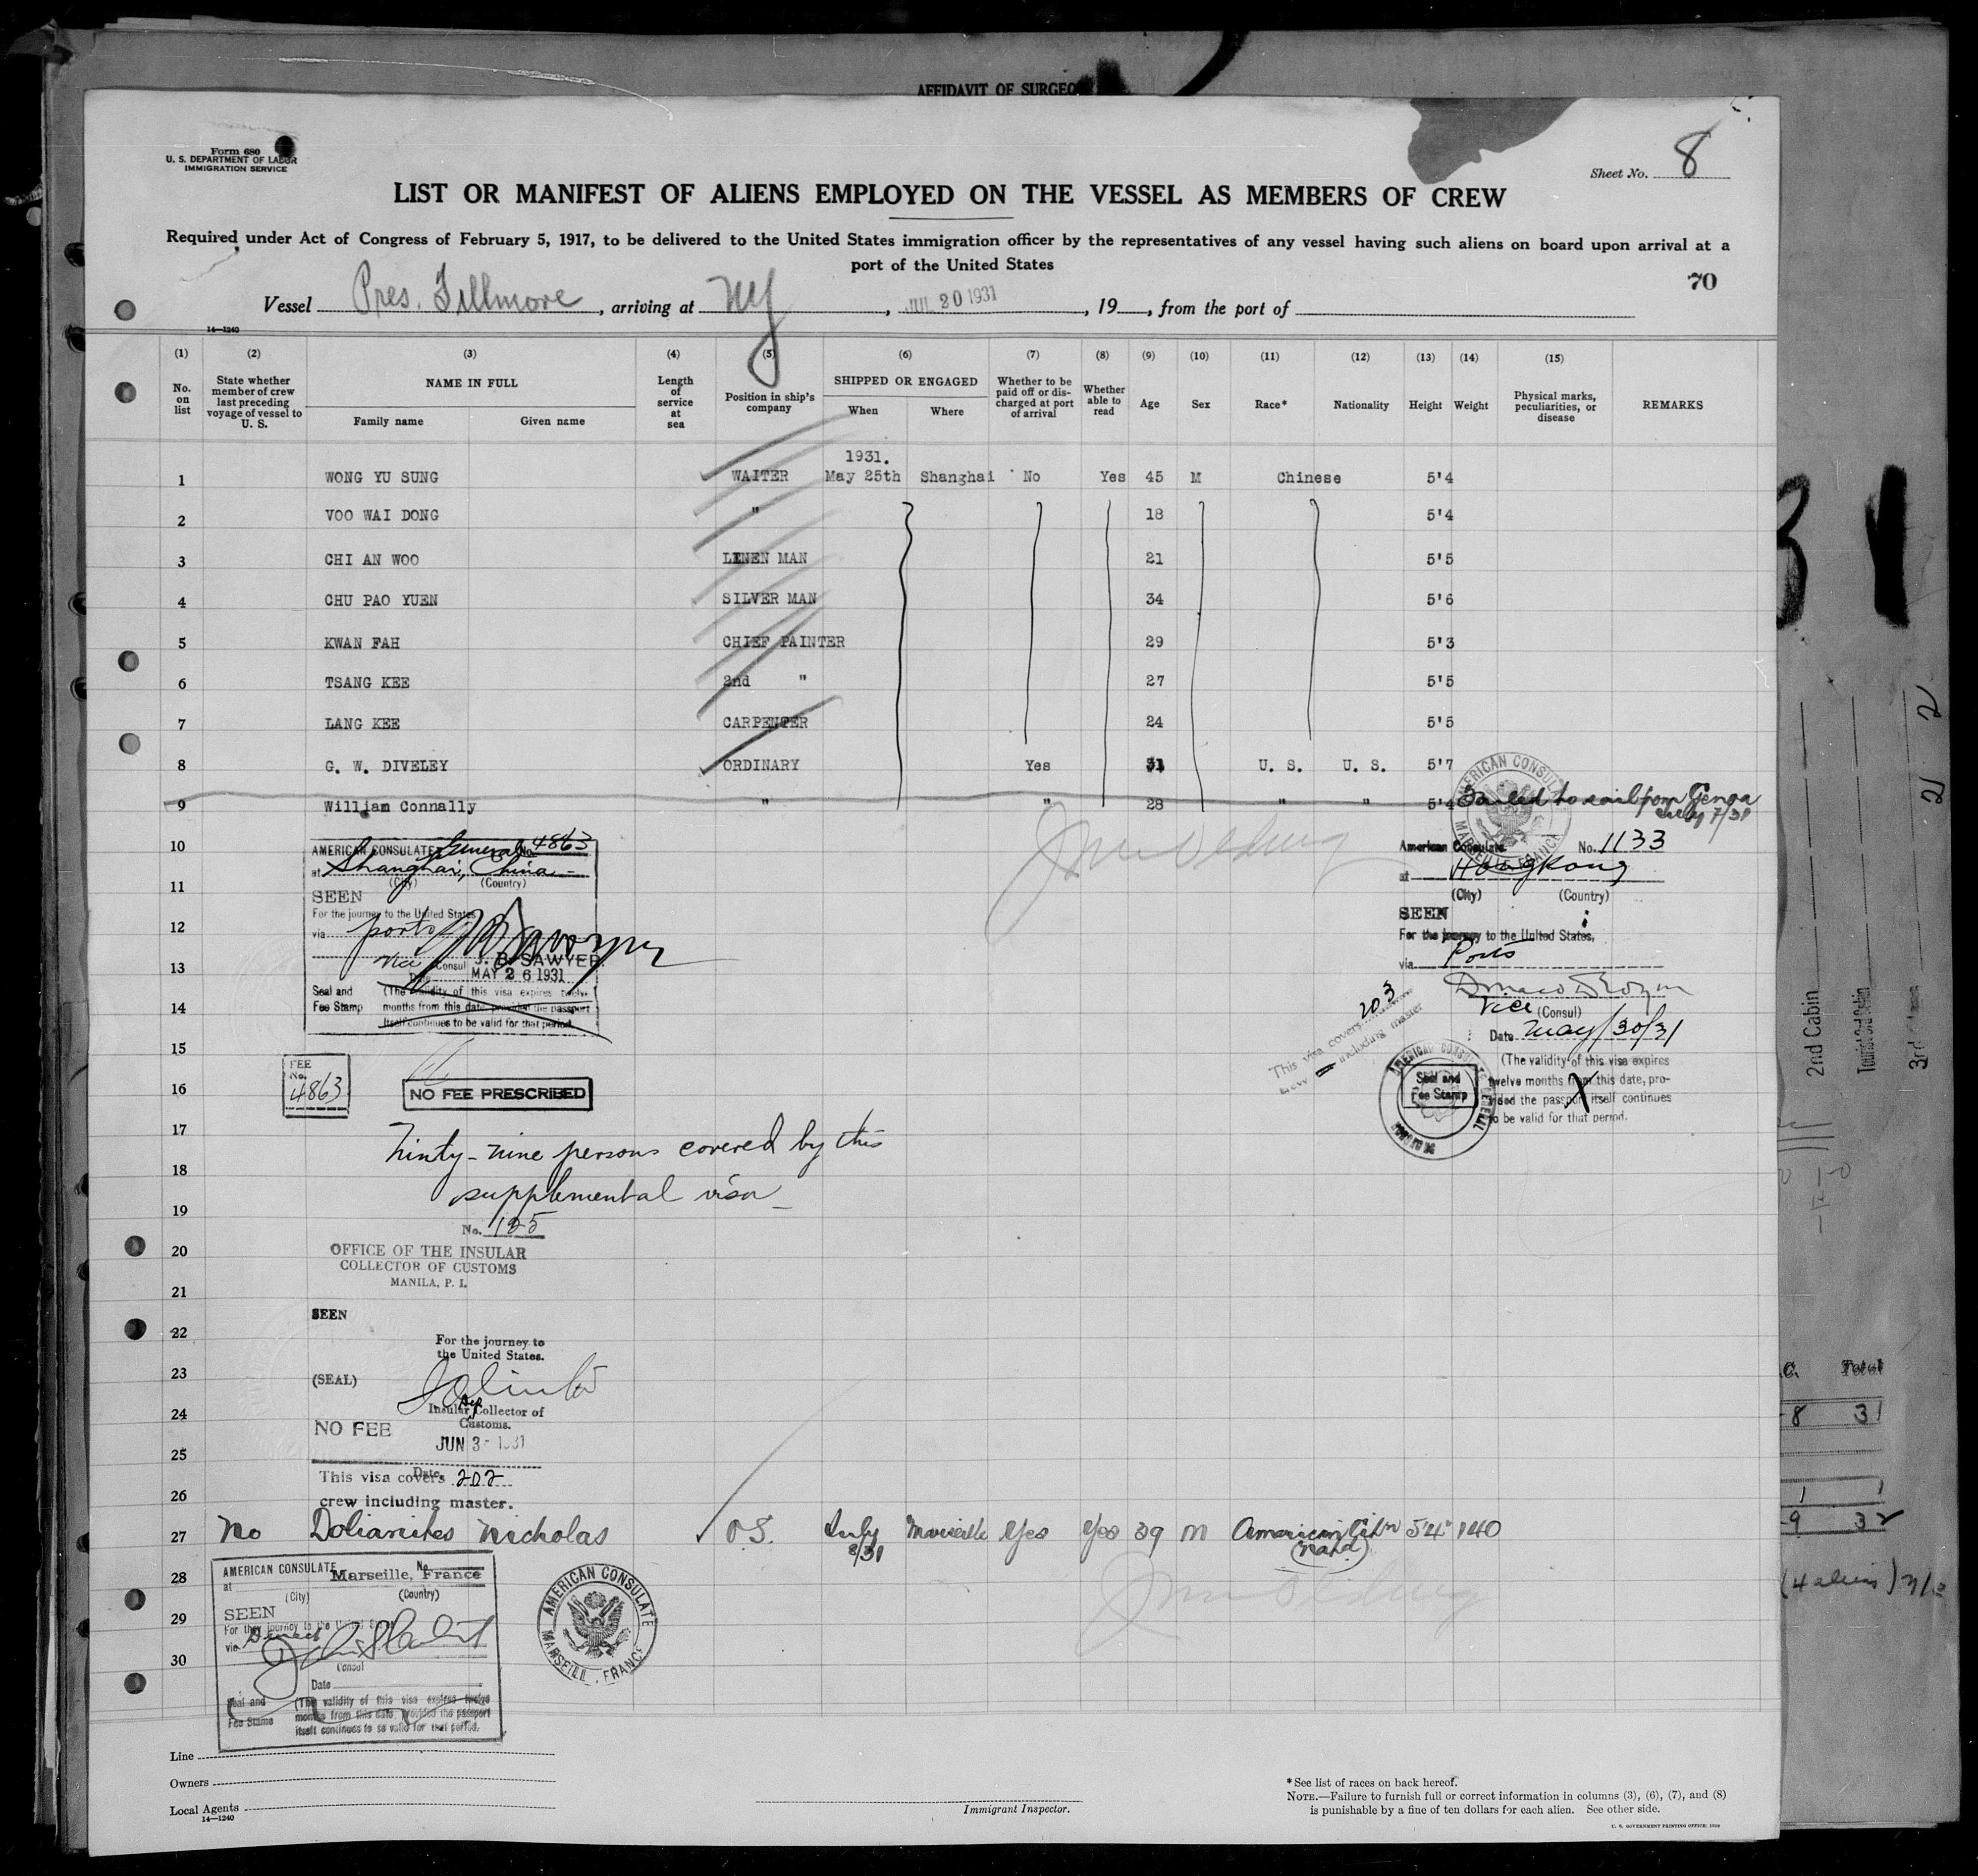 AFFIDAVIT OF SURGEO
Form 680
U. S. DEPARTMENT OF LABOR
IMMIGRATION SERVICE
Sheet No. 8
LIST OR MANIFEST OF ALIENS EMPLOYED ON THE VESSEL AS MEMBERS OF CREW
Required under Act of Congress of February 5, 1917, to be delivered to the United States immigration officer by the representatives of any vessel having such aliens on board upon arrival at a
port of the United States
70
Vessel Pres. Fillmore, arriving at NY, JUL 20 1931, 19__, from the port of
14—1240
(1) (2) (3) (4) (5) (6) (7) (8) (9) (10) (11) (12) (13) (14) (15)
No. on list
State whether member of crew last preceding voyage of vessel to U. S.
NAME IN FULL
Family name Given name
Length of service at sea
Position in ship's company
SHIPPED OR ENGAGED
When Where
Whether to be paid off or discharged at port of arrival
Whether able to read
Age
Sex
Race*
Nationality
Height
Weight
Physical marks, peculiarities, or disease
REMARKS
1931.
1 WONG YU SUNG WAITER May 25th Shanghai No Yes 45 M Chinese 5'4
2 VOO WAI DONG " 18 5'4
3 CHI AN WOO LINEN MAN 21 5'5
4 CHU PAO YUEN SILVER MAN 34 5'6
5 KWAN FAH CHIEF PAINTER 29 5'3
6 TSANG KEE 2nd " 27 5'5
7 LANG KEE CARPENTER 24 5'5
8 G. W. DIVELEY ORDINARY Yes 31 U. S. U. S. 5'7
9 William Connally " " 28 " " 5'4 Failed to sail from Genoa
July 7/31
10
11
12
13
14
15
16
17
18
19
20
21
22
23
24
25
26
AMERICAN CONSULATE General No. 4863
at Shanghai, China
(City) (Country)
SEEN
For the journey to the United States
via ports
Vice Consul J. B. SAWYER
Date MAY 26 1931
Seal and Fee Stamp
(The validity of this visa expires twelve
months from this date provided the passport
itself continues to be valid for that period.
FEE
No.
4863
NO FEE PRESCRIBED
Ninty-nine persons covered by this
supplemental visa
No. 125
OFFICE OF THE INSULAR
COLLECTOR OF CUSTOMS
MANILA, P. I.
SEEN
For the journey to
the United States.
(SEAL)
Dep.
Insular Collector of
Customs.
NO FEE
JUN 3- 1931
Date.
This visa covers 202
crew including master.
AMERICAN CONSULATE
MARSEILLE, FRANCE
American Consulate No. 1133
at Hongkong
(City) (Country)
SEEN
For the journey to the United States,
via Ports
Vice (Consul)
Date May/30/31
(The validity of this visa expires
twelve months from this date, pro-
vided the passport itself continues
to be valid for that period.
Seal and
Fee Stamp
AMERICAN CONSULATE GENERAL
HONGKONG
This visa covers 203
crew including master
27 No Dolianites Nicholas O.S. July 8/31 Marseille Yes Yes 39 M American Citzn (Natd) 5'4" 140
28
29
30
AMERICAN CONSULATE No.
at Marseille, France
(City) (Country)
SEEN
For the journey to the United States
via Direct
Consul
Date
Seal and
Fee Stamp
(The validity of this visa expires twelve
months from this date, provided the passport
itself continues to be valid for that period.
AMERICAN CONSULATE
MARSEILLE, FRANCE
Line
Owners
Local Agents
14—1240
Immigrant Inspector.
* See list of races on back hereof.
NOTE.—Failure to furnish full or correct information in columns (3), (6), (7), and (8)
is punishable by a fine of ten dollars for each alien. See other side.
U. S. GOVERNMENT PRINTING OFFICE
31
2nd Cabin
Tourist 3rd Cabin
3rd Class
2
21
C. Total
8 31
1 1
9 32
(4 aliens)